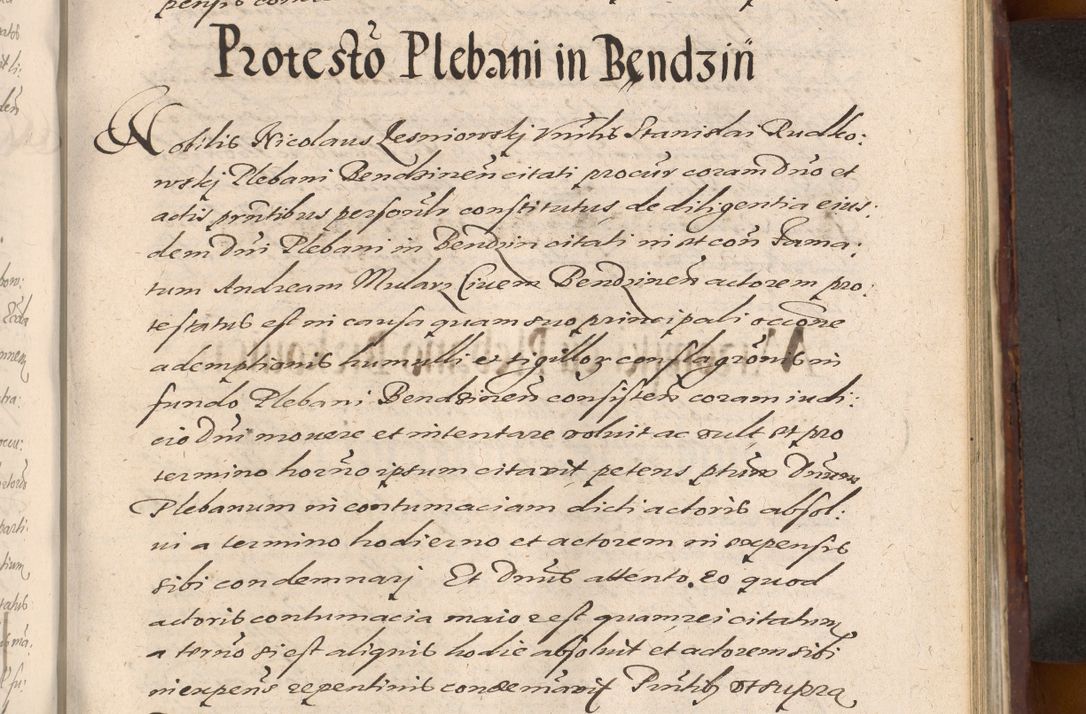 Protesto Plebani in Bendzin
Nobilis Nicolaus Lesniowskj Vnrlis Stanislai Rudko:
wskj Plebani Bendzinen citati procur coram Dno et
actis prntibus personlr constitutus, de diligentia eius:
dem Dni Plebani in Bendzin citati in et con fama:
tum Andream Mularz Ciuem Bendzinen actorem pro:
testatus est in causa quam suo principali occione
ademptionis humulli et tigillor conflagronis in
fundo Plebani Bendzinen consisten coram iudi:
cio Dni mouere et intentare voluit ac vult et pro
termino horno ipsum citavit petens Dnum
Plebanum in contumaciam dicti actoris absol:
ui a termino hodierno et actorem in expensis
sibi condemnarj Et Dnus attento eo quod
actoris contumacia maior est quam rei citatum
a terno si est aliqnis hodie absoluit et actorem sibi
in expens repentinis condemnavit Prntib vt supra